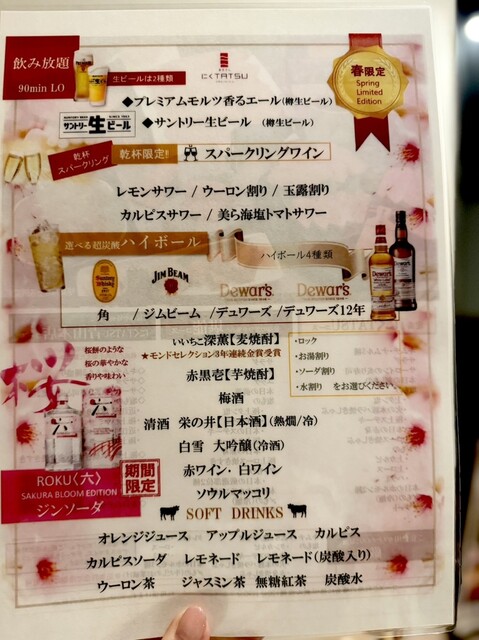 飲み放題
90min LO
生ビールは2種類
にくTATSU
春限定
Spring
Limited
Edition
◆プレミアムモルツ香るエール(樽生ビール)
サントリー生ビール
◆サントリー生ビール (樽生ビール)
乾杯
スパークリング
乾杯限定!
スパークリングワイン
レモンサワー / ウーロン割り / 玉露割り
カルピスサワー / 美ら海塩トマトサワー
選べる超炭酸ハイボール
ハイボール4種類
JIM BEAM
Dewar's
Dewar's
角 / ジムビーム / デュワーズ / デュワーズ12年
いいちこ深薫【麦焼酎】
★モンドセレクション3年連続金賞受賞
赤黒壱【芋焼酎】
・ロック
・お湯割り
・ソーダ割り
・水割り をお選びください。
梅酒
清酒 栄の井【日本酒】(熱燗/冷)
白雪 大吟醸(冷酒)
赤ワイン・白ワイン
ソウルマッコリ
桜
桜餅のような
桜の華やかな
香りや味わい
六
六
ROKU〈六〉
SAKURA BLOOM EDITION
ジンソーダ
期間
限定
SOFT DRINKS
オレンジジュース アップルジュース カルピス
カルピスソーダ レモネード レモネード(炭酸入り)
ウーロン茶 ジャスミン茶 無糖紅茶 炭酸水